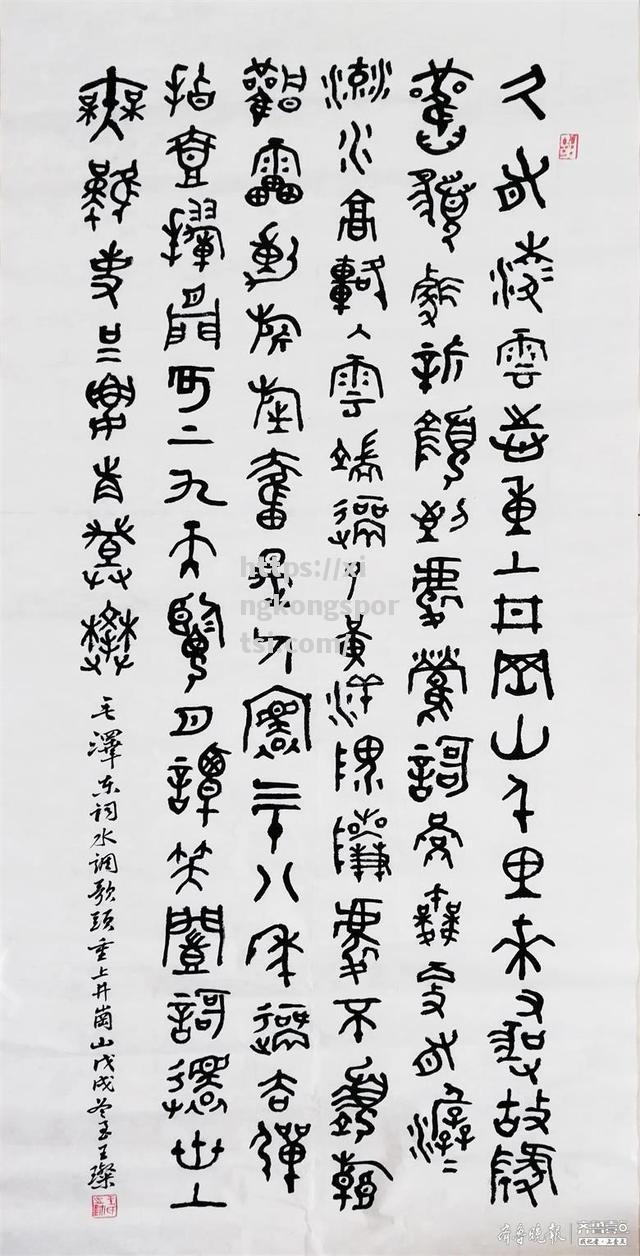 久有凌雲志重上井岡山千里来尋故地
舊貌變新顏到處鶯歌燕舞更有潺〻
流水高路入雲端過了黃洋界險處不須看
風雷動旌旗奮是人寰三十八年過去彈
指壹揮間可上九天攬月談笑凱歌還世上
無難事只要肯登攀
毛澤东词水调歌頭重上井崗山戊戌冬玉王璨
https://xi
ngkongspor
tsi.com/
齐鲁晚报
齐鲁壹点